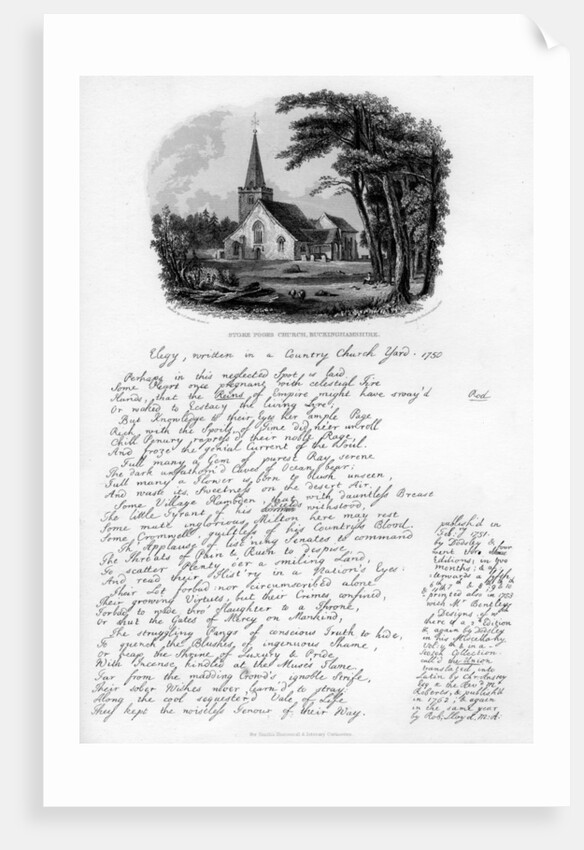 STOKE POGES CHURCH, BUCKINGHAMSHIRE.
Elegy, written in a Country Church Yard. 1750
Perhaps in this neglected Spot is laid
Some Heart once pregnant with celestial Fire
Hands, that the Reins of Empire might have sway'd
Rod
Or waked to Ecstacy the living Lyre;
But Knowledge to their Eyes her ample Page
Rich with the Spoils of Time did ne'er unroll
Chill Penury repress'd their noble Rage,
And froze the genial Current of the Soul.
Full many a Gem of purest Ray serene
The dark unfathom'd Caves of Ocean bear:
Full many a Flower is born to blush unseen,
And wast its Sweetness on the desert Air.
Some Village Hambden, that with dauntless Breast
Fields
The little Tyrant of his withstood,
Some mute inglorious Milton here may rest
Some Cromwell guiltless of his Countrys Blood.
Th' Applause of list'ning Senates to command
The Threats of Pain & Ruin to despise,
To scatter Plenty o'er a smiling Land,
And read their Hist'ry in a Nation's Eyes:
Their Lot forbad: nor circumscribed alone
Their growing Virtues, but their Crimes confined,
Forbad to wade thro' slaughter to a Throne,
Or shut the Gates of Mercy on Mankind,
The struggling Pangs of conscious Truth to hide,
To quench the Blushes of ingenuous Shame,
Or heap the Shrine of Luxury & Pride
With Incense, kindled at the Muse's Flame.
Far from the madding Crowd's ignoble Strife,
Their sober Wishes never learn'd to stray:
Along the cool sequester'd Vale of Life
They kept the noiseless Tenour of their Way.
publish'd in
Feb:ry 1751.
by Dodsley &
went thro' four
Editions; in two
months; & af-
terwards a fifth
6th 7th & 8th 9th & 10th
& 11th
printed also in 1753
with Mr Bentley's
Designs, of wch
there is a 2d Edition
& again by Dodsley
in his Miscellany
Vol: 4th & in a
Scotch Collection
call'd the Union.
translated into
Latin by Chr: Anstey
Esq & the Revd Mr
Roberts, & publish'd
in 1762; & again
in the same year
by Rob: Lloyd, M:A: